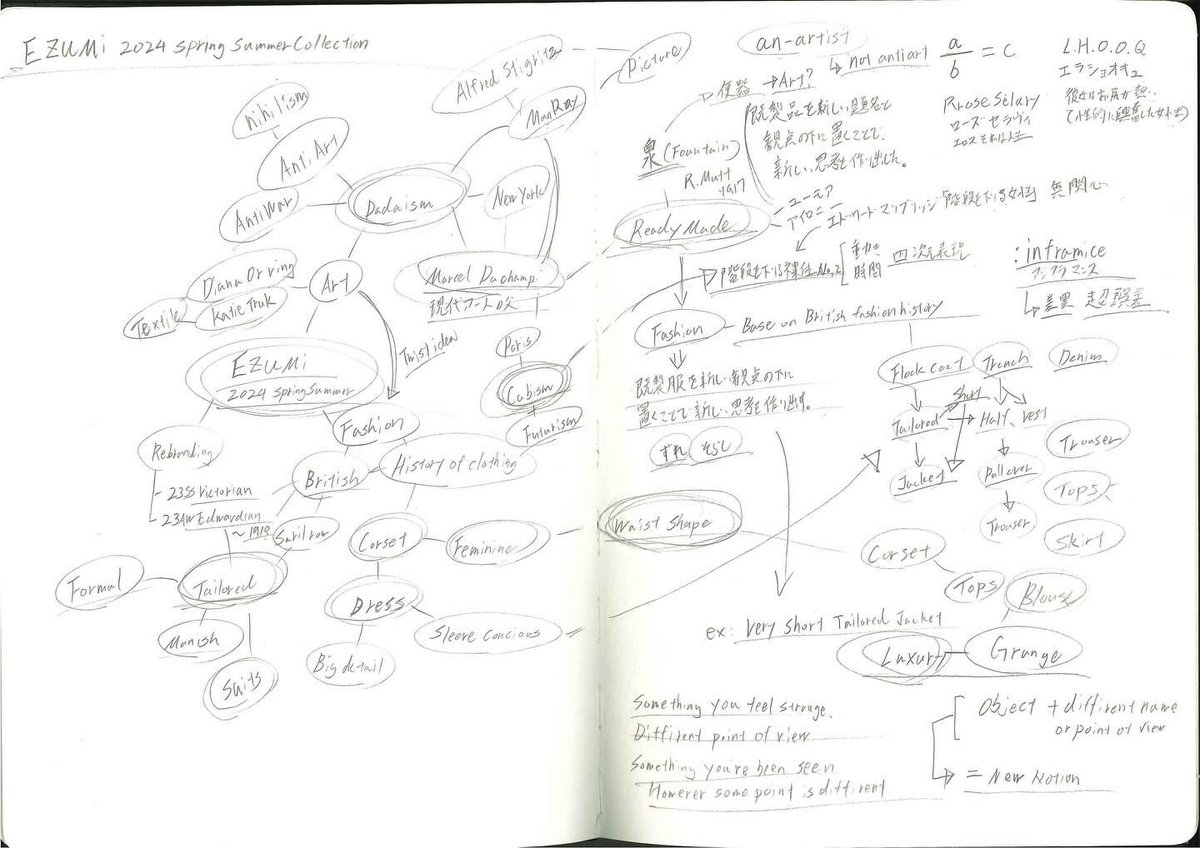 EZUMi 2024 Spring Summer Collection
nihilism
Anti Art
Anti War
Dadaism
Alfred Stiglitz
Man Ray
New York
Marcel Duchamp
現代アートの父
Diana Orving
Katie Truk
Textile
Art
Twist idea
Paris
Cubism
+
Futurism
EZUMi
2024 Spring Summer
Fashion
History of clothing
British
Rebranding
- 23SS Victorian
23AW Edwardian
~1910
Savilrow
Tailored
Formal
Manish
Suits
Corset
Feminine
Dress
Sleeve Concious
Big detail
Picture
an-artist
not antiart
a/b = C
L.H.O.O.Q
エラショオキュ
彼女はお尻が熱い
(性的に興奮した女性)
Rrose Sélary
ローズ セラヴィ
エロス それは人生
便器 →Art?
既製品を新しい題名と
観点の下に置くことで、
新しい思考を作り出した。
泉 (Fountain)
R.Mutt
1917
Ready Made
ユーモア
アイロニー
エドワード マイブリッジ「階段を下りる女性」
無関心
階段を下りる裸体 No,2
動き
時間
四次元表現
: inframice
アンフラマンス
差異
誤差
Fashion
Base on British fashion history
既製服を新しい観点の下に
置くことで新しい思考を作り出す。
ずれ そらし
Flock coat
Trench
Denim
Short
Tailored
Half, vest
Jacket
Pullover
Trouser
Trouser
Tops
Skirt
Waist Shape
Corset
Tops
Blouse
ex: Very Short Tailored Jacket
Luxury
Grunge
Something you feel strange.
Diffirent point of view
Something you're been seen
However some point is diffirent
Object + diffirent name
or point of view
= New Notion